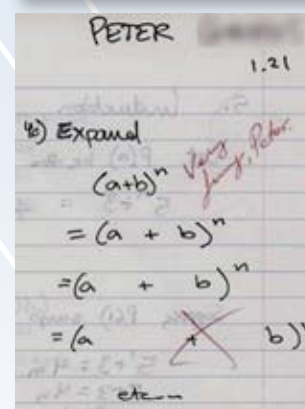 PETER
1.21
4c) Expand
Very funny, Peter.
(a+b)^n
= (a + b)^n
=(a + b)^n
=(a + b)^n
etc...